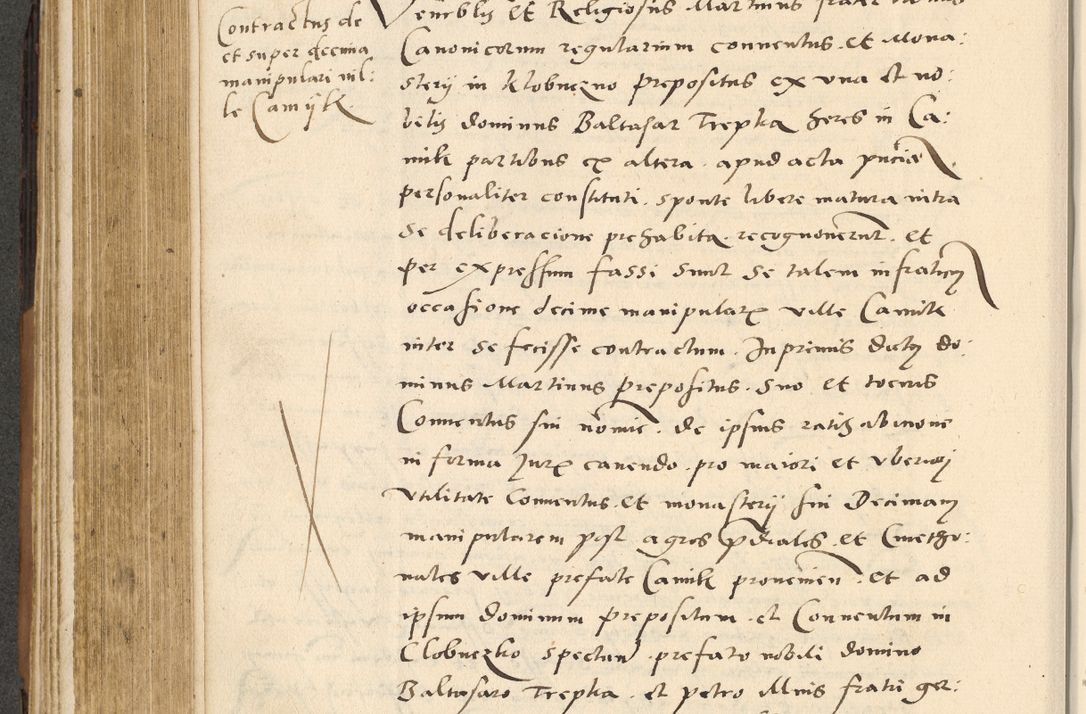 Contractus de
et super decima
manipulari vil:
le Camÿk
Venerblis et Religiosus Martinus frater
Canonicorum regularium conventus et Mona:
sterÿ in Klobuczno prepositus ex una et no:
bilis dominus Baltasar Trepka heres in Ca:
mik partibus ex altera apud acta pñcia
personaliter constituti sponte libere matura intra
se deliberacione prehabita recognoverunt et
per expressum fassi sunt se talem infrascr
occasione decime manipular ville Camik
inter se fecisse contractum. Inprimis dictus do:
minus Martinus prepositus suo et tocius
Conventus sui noïe. de ipsius ratihabicione
in forma Jur cavendo pro maiori et uberiori
utilitate Conventus et monasterÿ sui Decimam
manipularem post agros pdiales et Cmetho:
nales ville prefate Camik provenien et ad
ipsum dominum prepositum et Conventum in
Clobuczko spectan prefato nobili domino
Baltasaro Trepka et petro Mris fratri ger: